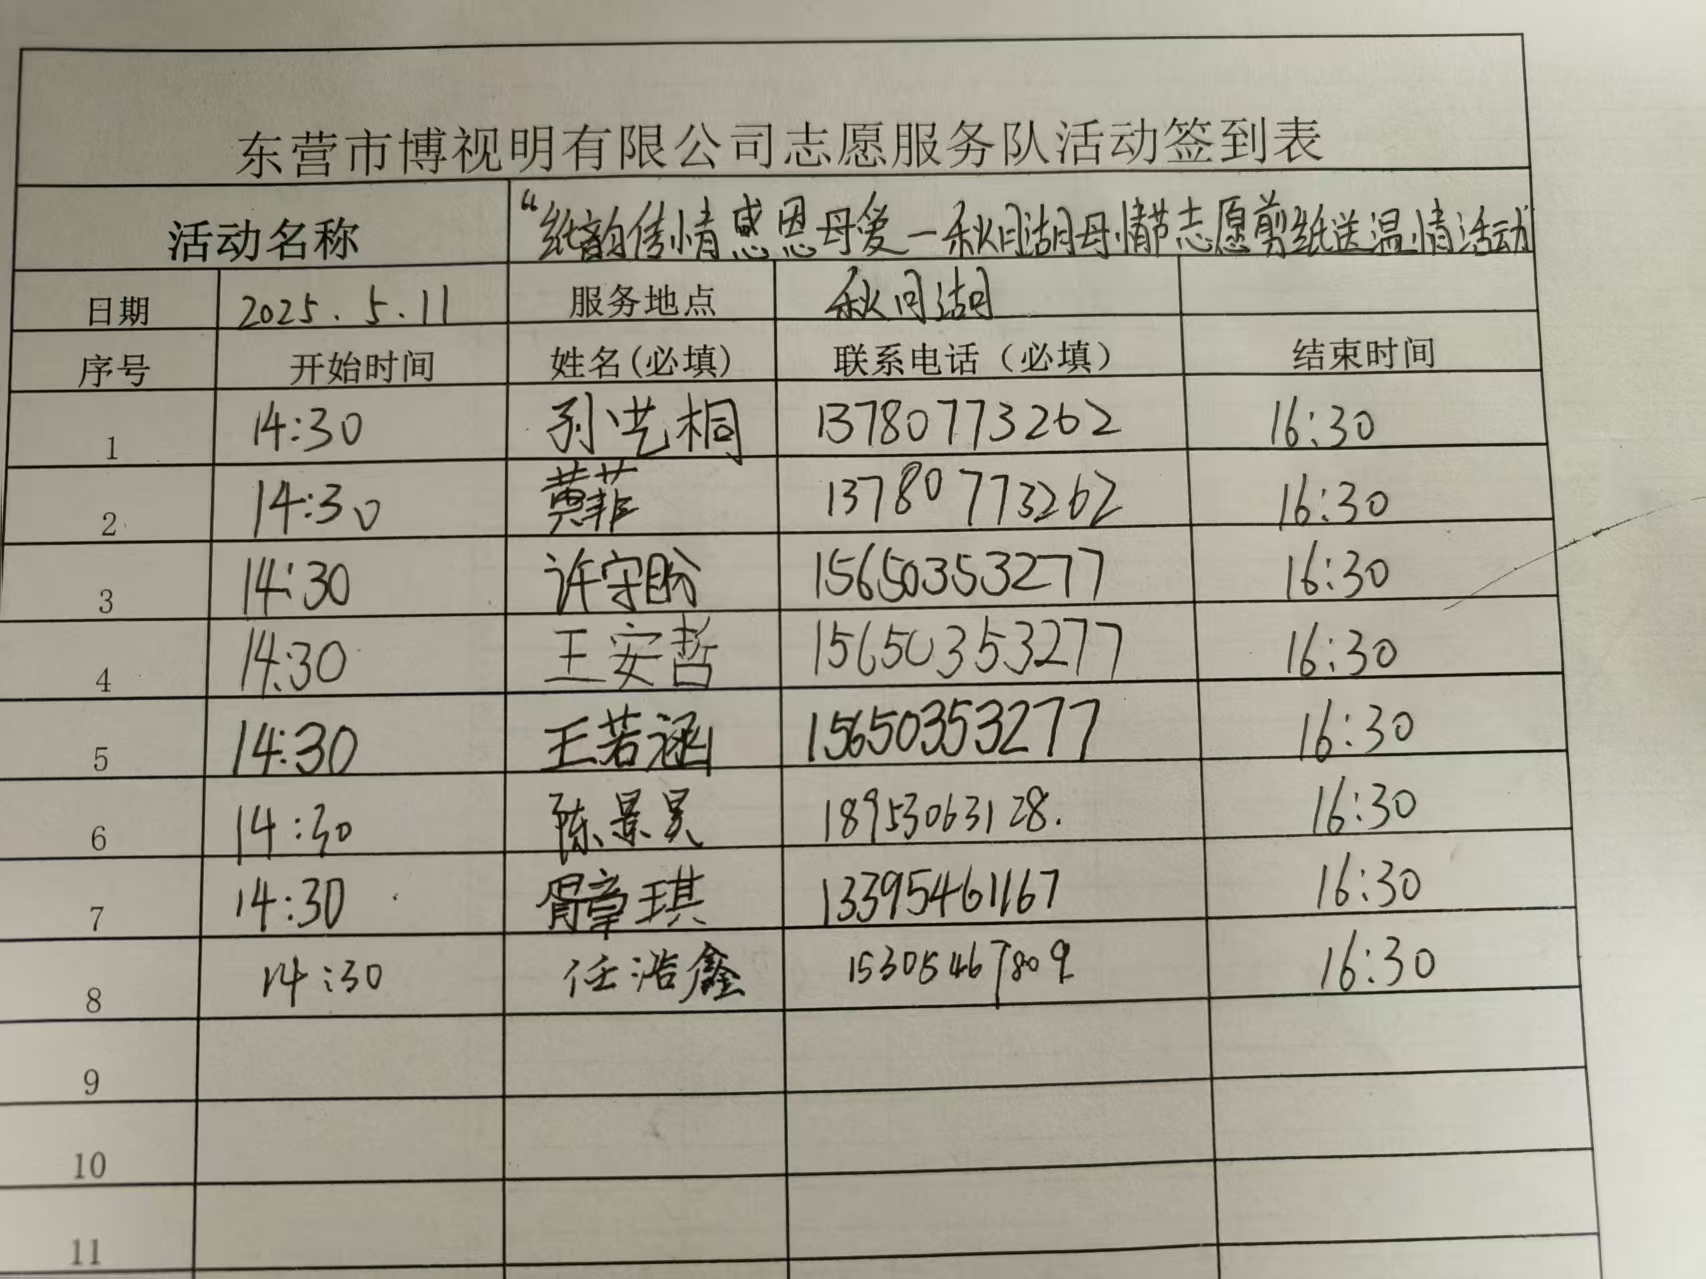 东营市博视明有限公司志愿服务队活动签到表
活动名称 “纸韵传情感恩母爱—秋月湖母情节志愿剪纸送温情活动
日期 2025.5.11 服务地点 秋月湖
序号 开始时间 姓名(必填) 联系电话（必填） 结束时间
1 14:30 孙艺桐 13780773262 16:30
2 14:30 黄菲 13780773262 16:30
3 14:30 许守盼 15650353277 16:30
4 14:30 王安哲 15650353277 16:30
5 14:30 王若涵 15650353277 16:30
6 14:30 陈景昊 18953063128. 16:30
7 14:30 章琪 13395461167 16:30
8 14:30 任浩鑫 15305467809 16:30
9
10
11